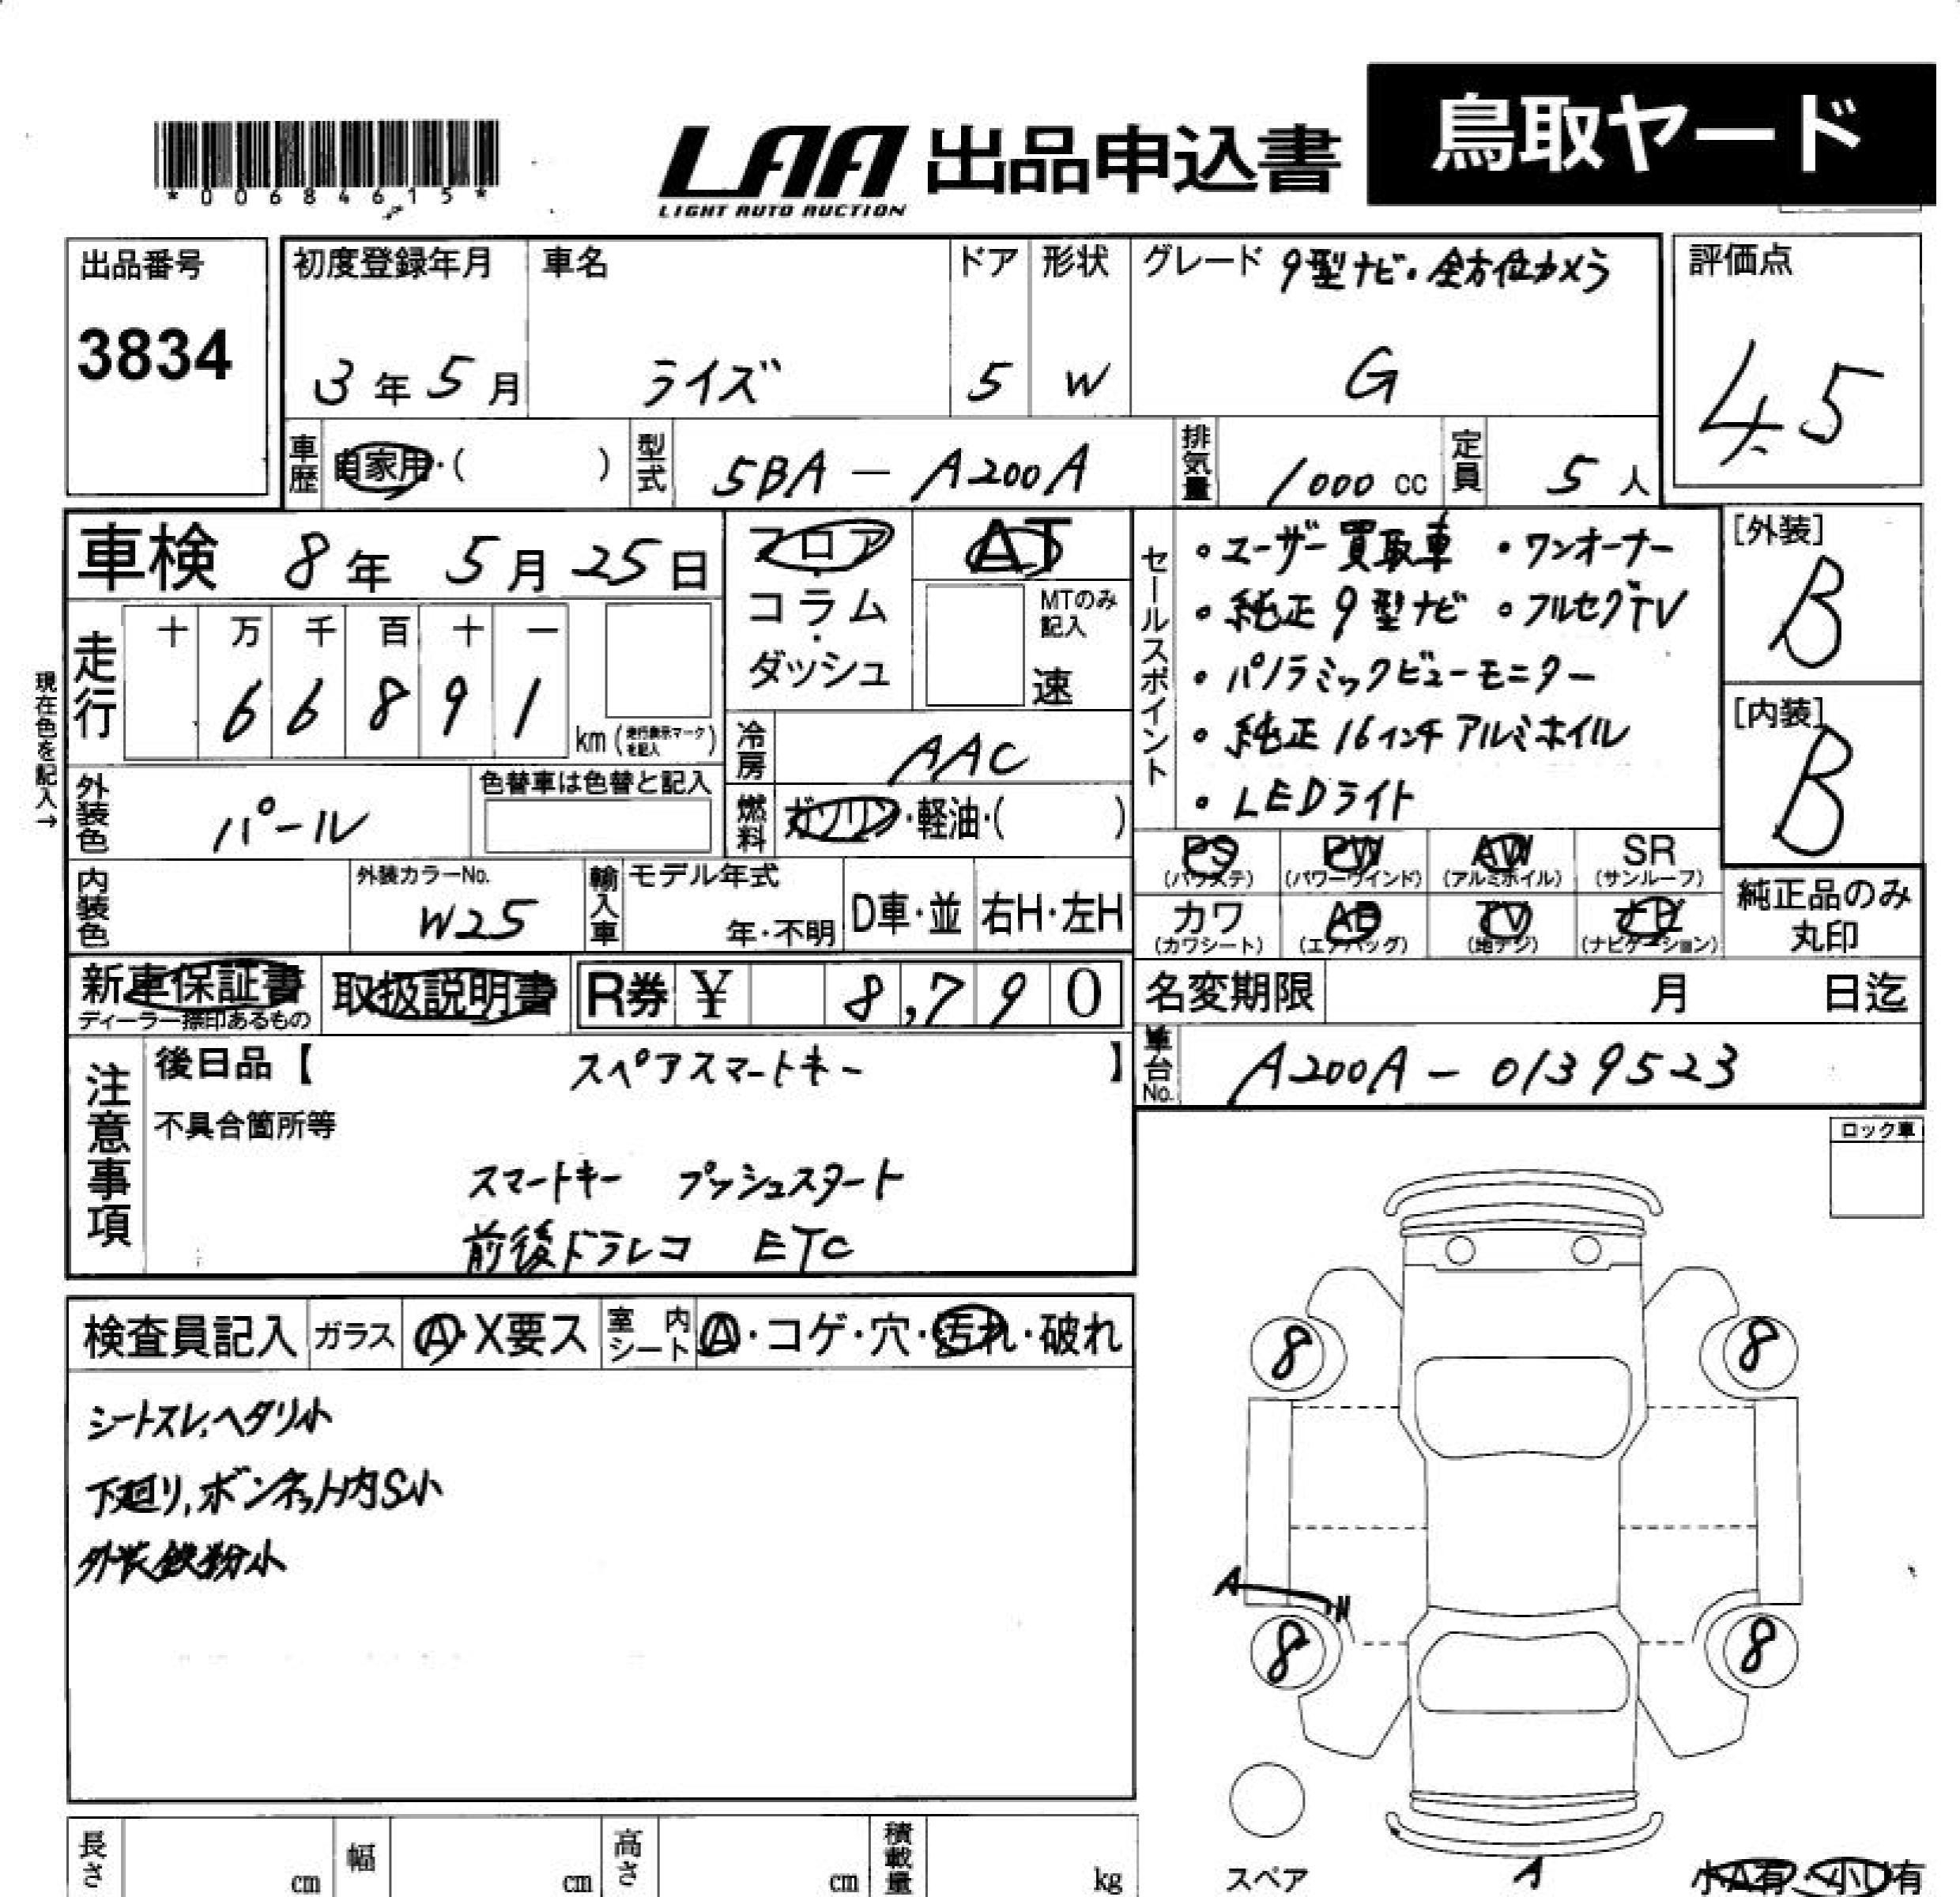 鳥取ヤード
LAA 出品申込書
LIGHT AUTO AUCTION
*00684615*
出品番号
3834
初度登録年月
3年5月
車名
ライズ
ドア
5
形状
W
グレード 9型ナビ・全方位カメラ
G
評価点
4.5
車歴 自家用・( )
型式 5BA-A200A
排気量 1000 cc
定員 5人
車検 8年 5月 25日
フロア・コラム・ダッシュ
AT
MTのみ記入
速
セールスポイント
・ユーザー買取車 ・ワンオーナー
・純正9型ナビ ・フルセグTV
・パノラミックビューモニター
・純正16インチアルミホイル
・LEDライト
[外装]
B
[内装]
B
現在色を記入→
走行
十 万 千 百 十 一
6 6 8 9 1
km (走行表示マークを記入)
冷房 AAC
外装色 パール
色替車は色替と記入
燃料 ガソリン・軽油・( )
PS (パワステ)
PW (パワーウインド)
AW (アルミホイル)
SR (サンルーフ)
カワ (カワシート)
AB (エアバッグ)
TV (地デジ)
ナビ (ナビゲーション)
純正品のみ丸印
内装色
外装カラーNo.
W25
輸入車 モデル年式
年・不明
D車・並
右H・左H
新車保証書
ディーラー捺印あるもの
取扱説明書
R券 ¥ 8,790
名変期限 月 日迄
車台No. A200A-0139523
注意事項
後日品【 スペアスマートキー 】
不具合箇所等
スマートキー プッシュスタート
前後ドラレコ ETC
ロック車
検査員記入
ガラス
A・X要ス
室内シート
A・コゲ・穴・汚れ・破れ
シートスレ、ヘタリ小
下廻り、ボンネット内S小
外装鉄粉小
8
8
A
8
8
スペア
A
小A有・小U有
長さ cm
幅 cm
高さ cm
積載量 kg